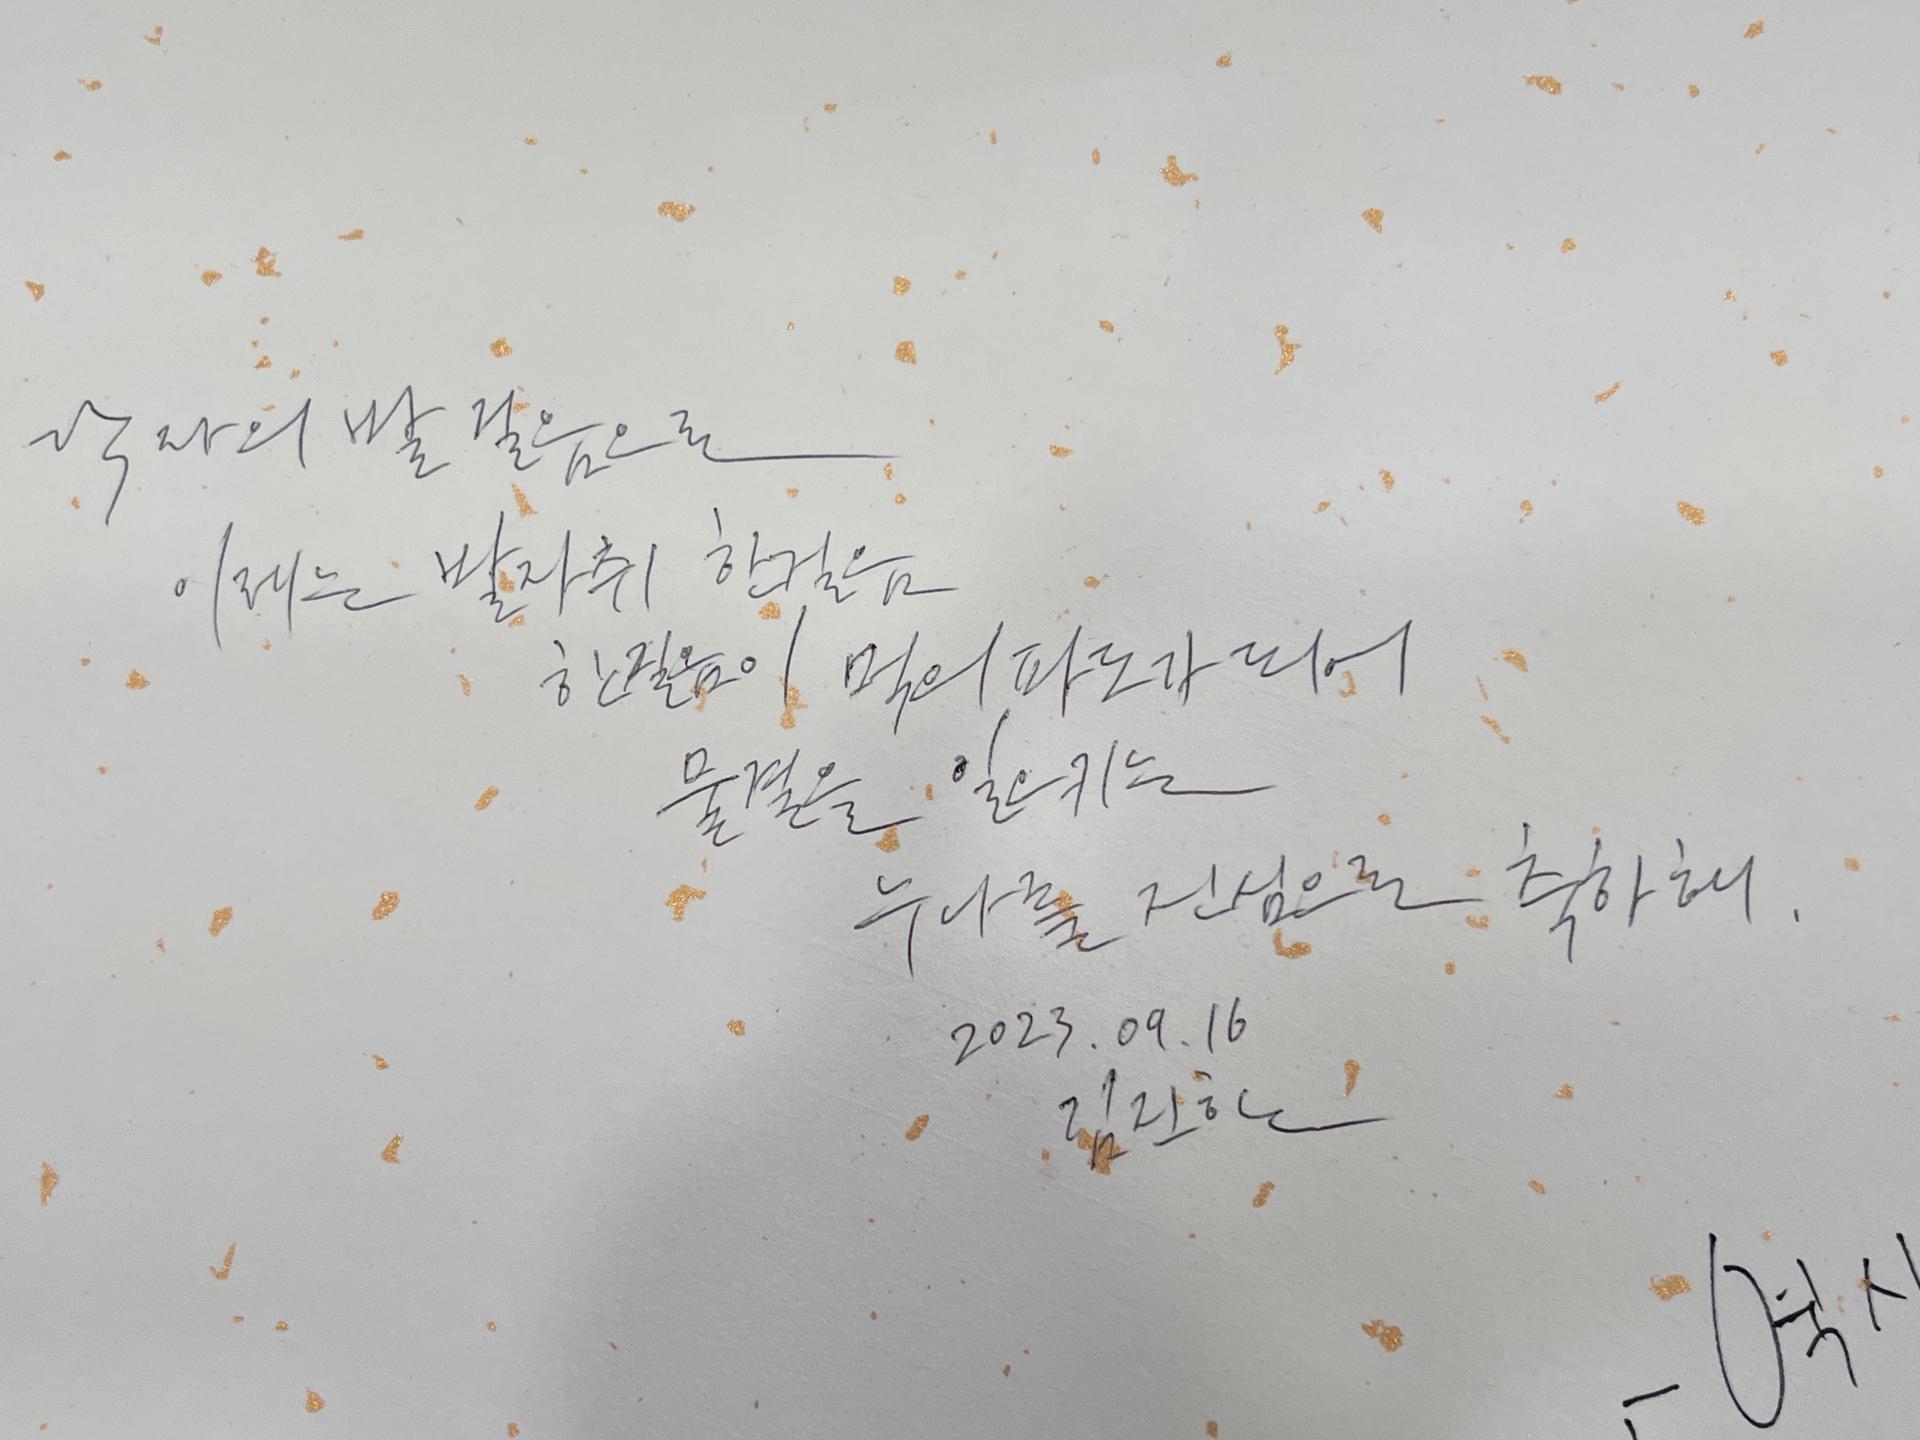 사자의 발걸음으로
이제는 발자취 한걸음
한걸음이 먹의 파도가 되어
물결을 일으키는
누나를 진심으로 축하해.
2023.09.16
김진한